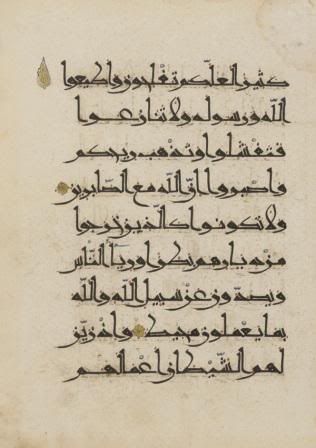 كثيرا لعلكم تفلحون وأطيعوا
الله ورسوله ولا تنازعوا
فتفشلوا وتذهب ريحكم
واصبروا إن الله مع الصابرين
ولا تكونوا كالذين خرجوا
من ديارهم بطرا ورياء الناس
ويصدون عن سبيل الله والله
بما يعملون محيط وإذ زين
لهم الشيطان أعمالهم